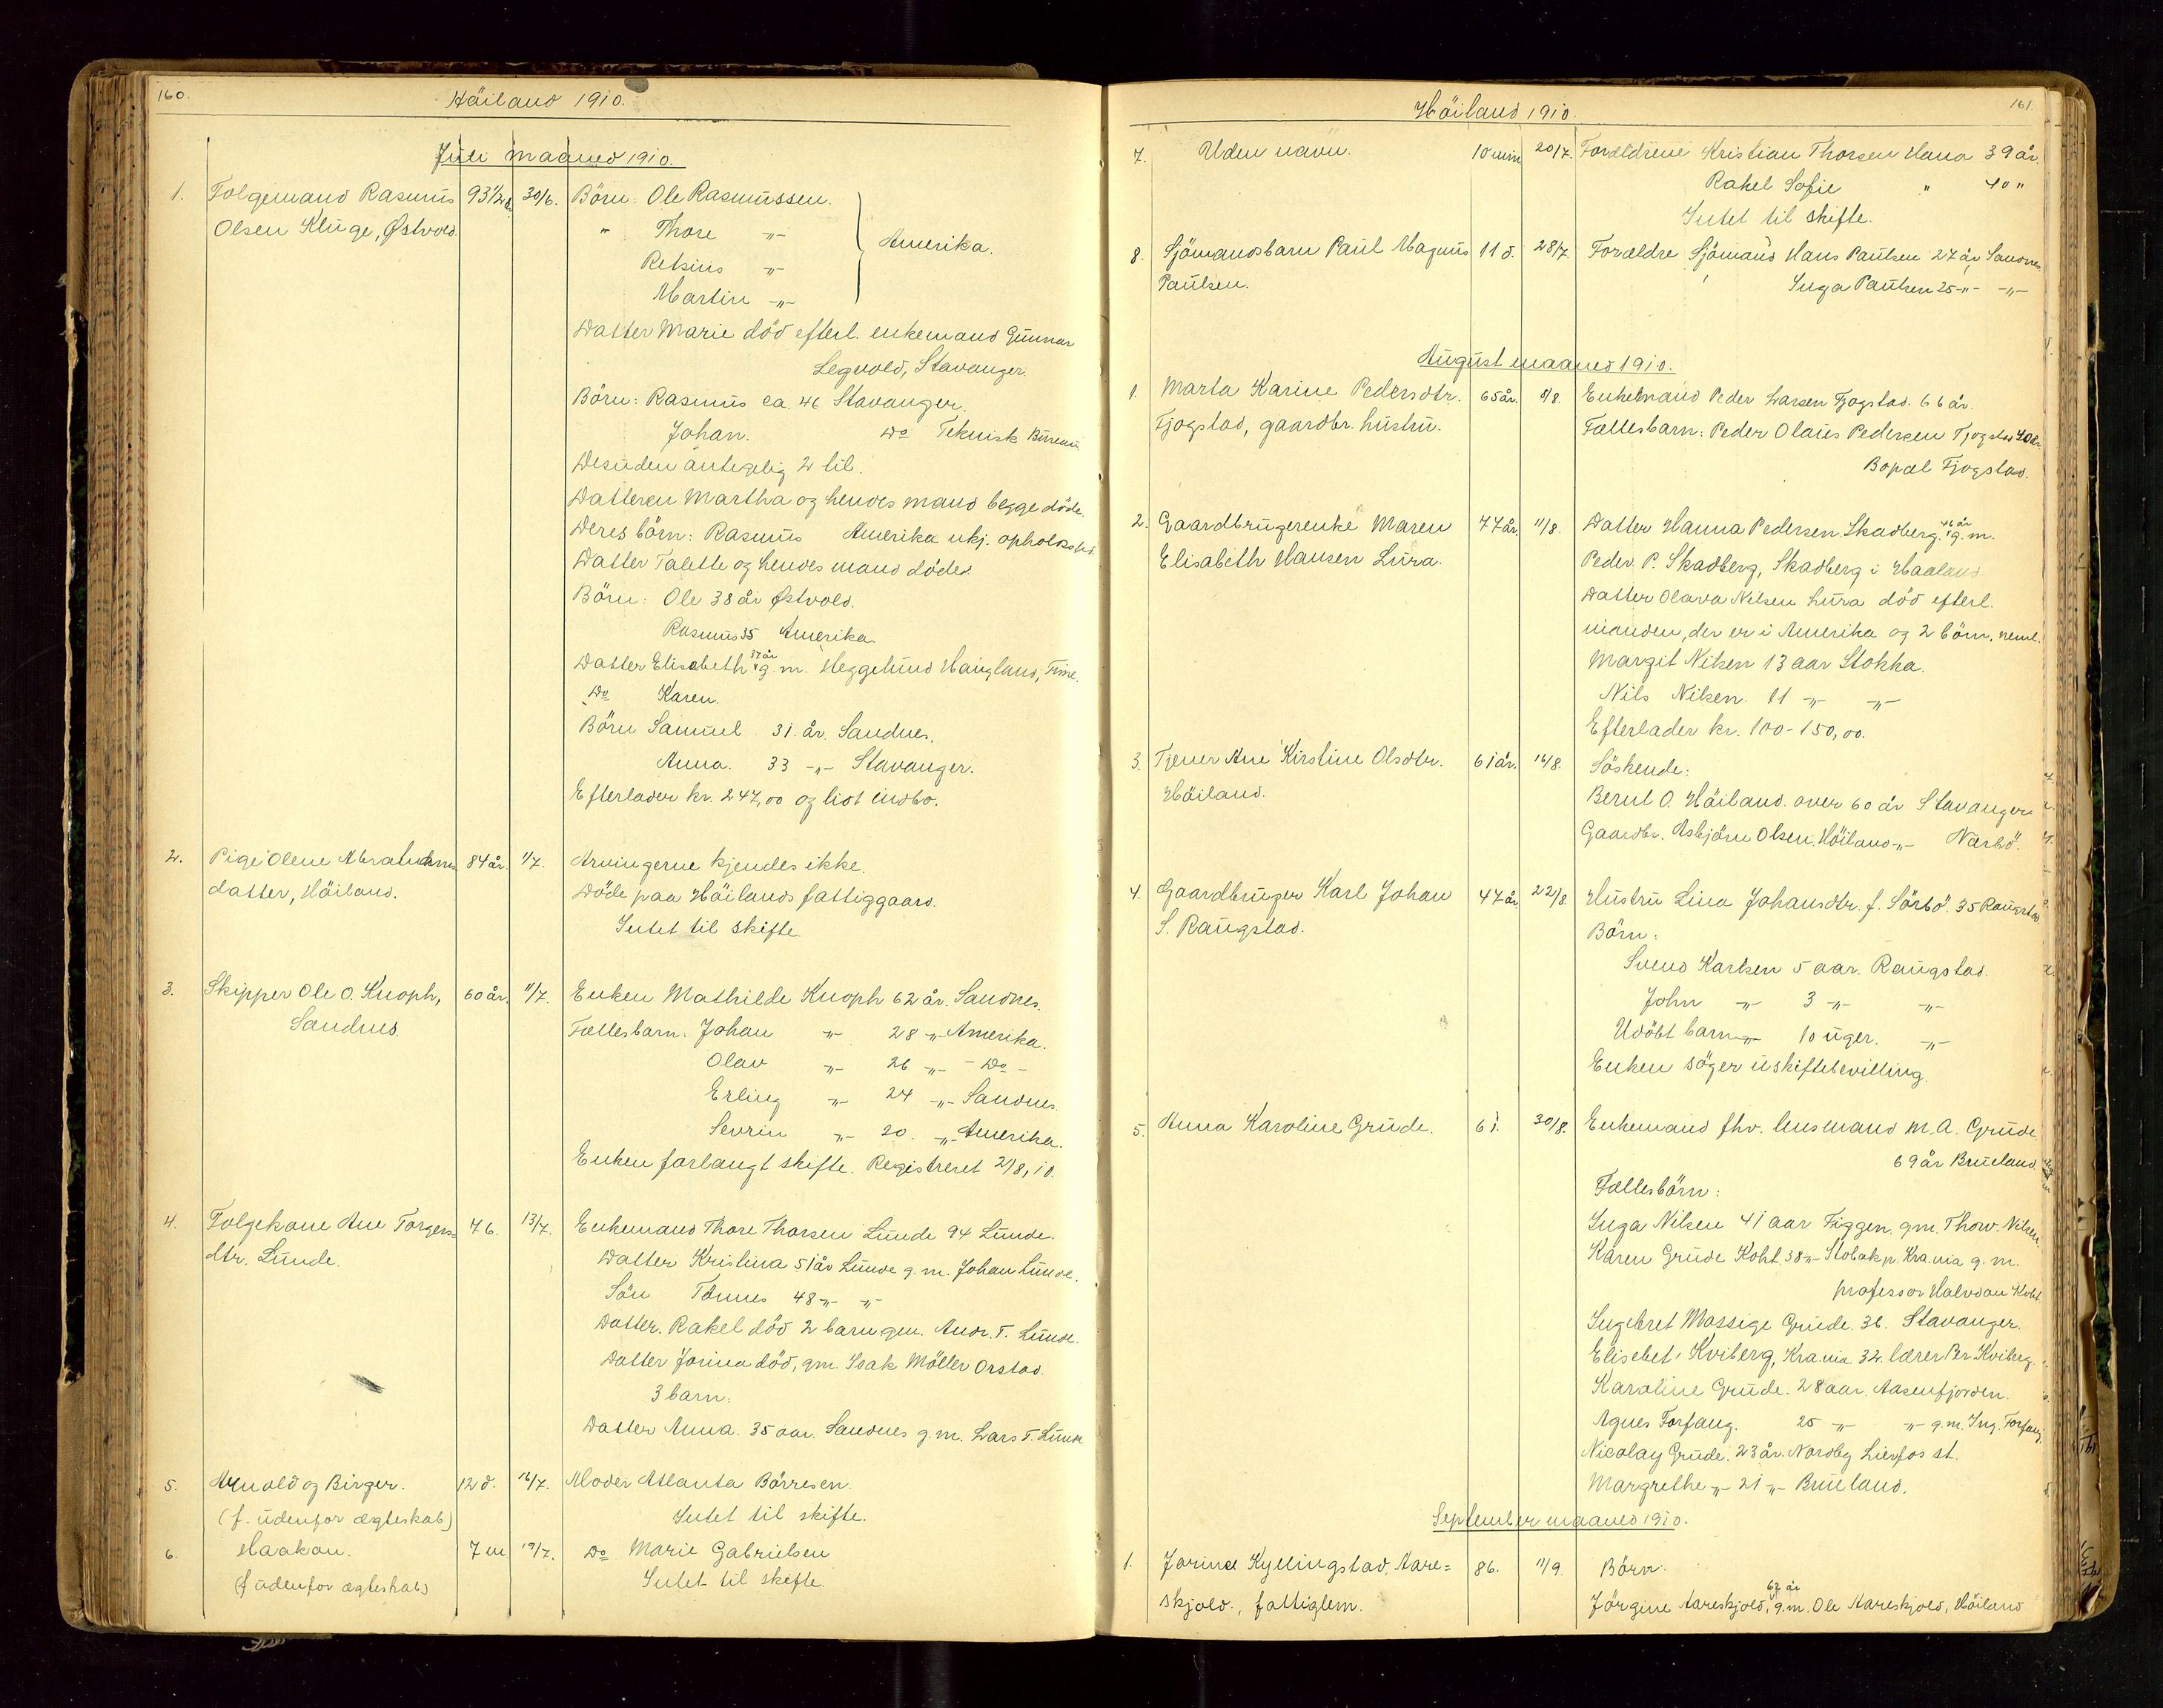 160.
Häiland 1910.
Juli maaned 1910.
1. Folgemand Rasmus 93 1/2 å 30/6. Börn: Ole Rasmussen.
Olsen Kluge, Østvold. " Thore -"-
Retsius -"- Amerika.
Martin -"-
Datter Marie död efterl. enkemand Gunnar
Legvold, Stavanger.
Börn: Rasmus ca. 46 Stavanger.
Johan. Do Teknisk Bureau
Desuden antagelig 2 til.
Datteren Martha og hendes mand begge döde.
Deres börn: Rasmus Amerika ukj. opholdsted.
Datter Talette og hendes mand döde.
Börn: Ole 38 år Østvold.
Rasmus 35 Amerika.
Datter Elisabeth 37 år g. m. Heggelund Haugland, Time.
Do Karen.
Börn Samuel 31. år. Sandnes.
Anna. 33 -"- Stavanger.
Efterlader kr. 247,00 og lidt indbo.
2. Pige Olene Abrahams 84 år. 1/7. Arvingerne kjendes ikke.
datter, Häiland. Döde paa Häilands fattiggaard.
Intet til skifte.
3. Skipper Ole O. Knoph, 60 år. 11/7. Enken Mathilde Knoph 62 år. Sandnes.
Sandnes. Fællesbarn. Johan -"- 28 -"- Amerika.
Olav -"- 26 -"- - Do -
Erling -"- 24 -"- Sandnes.
Sevrin -"- 20. -"- Amerika.
Enken forlangt skifte. Registreret 2/8, 10.
4. Folgekone Ane Torgers= 76. 13/7. Enkemand Thore Thorsen Lunde 94 Lunde.
dtr. Lunde. Datter Kristina 51 år Lunde g. m. Johan Lunde.
Sön Tönnes 48 -"- -"-
Datter. Rakel död 2 barn gm. Andr. T. Lunde.
Datter Jorina död, gm. Isak Möller Orstad.
3 barn.
Datter Anna. 35 aar. Sandnes g. m. Lars T. Lunde
5. Arnold og Birger. 12 d. 16/7. Moder Atlanta Börresen.
(f. udenfor ægteskab) Intet til skifte.
6. Haakon. 7 m 19/7. Do Marie Gabrielsen
(f udenfor ægteskab) Intet til skifte.
161.
Häiland 1910.
7. Uden navn. 10 min 20/7. Forældrene Kristian Thorsen Hana 39 år.
Rakel Sofie " 40 "
Intet til skifte.
8. Sjömandsbarn Paul Magnus 11 d. 28/7. Forældre Sjömand Hans Paulsen 27 år Sandnes
Paulsen. Inga Paulsen 25 -"- -"-
August maaned 1910.
1. Marta Karine Pedersdtr. 65 år. 8/8. Enkemand Peder Larsen Fjogstad. 66 år.
Fjogstad, gaardbr. hustru. Fællesbarn: Peder Olaus Pedersen Fjogstad 40 år
Bopæl Fjogstad.
2. Gaardbrugerenke Maren 77 år. 11/8. Datter Hanna Pedersen Skadberg. 46 år g. m.
Elisabeth Hansen Lura. Peder P. Skadberg, Skadberg i Haaland
Datter Olava Nilsen Lura död efterl.
manden, der er i Amerika og 2 börn. neml.
Margit Nilsen 13 aar Stokka.
Nils Nilsen. 11 -"- -"-
Efterlader kr. 100-150,00.
3. Tjener Ane Kirstine Olsdtr. 61 år. 16/8. Söskende:
Häiland. Bernt O. Häiland. over 60 år Stavanger
Gaardbr. Asbjörn Olsen Höiland -"- Nærbö.
4. Gaardbruger Karl Johan 47 år 22/8. Hustru Lina Johansdtr. f. Sörbö. 35 Raugstad
S. Raugstad. Börn:
Svend Karlsen 5 aar. Raugstad.
John -"- 3 -"- -"-
Udöbt barn -"- 10 uger. -"-
Enken söger uskiftebevilling.
5. Anna Karoline Grude. 61. 30/8. Enkemand fhv. lensmand M. A. Grude
69 år Brueland.
Fællesbörn:
Inga Nilsen 41 aar Figgen. gm. Thorv. Nilsen.
Karen Grude Koht. 38 -"- Stobak p. Kra.nia g. m.
professor Halvdan Koht.
Ingebret Mossige Grude. 36. Stavanger.
Elisebet Kviberg, Kra.nia 32. lærer Per Kviberg.
Karoline Grude. 28 aar. Aasenfjorden.
Agnes Forfang. 25 -"- -"- g. m. Ing. Forfang.
Nicolay Grude. 23 år. Nordby Lierfos st.
Margrethe -"- 21 -"- Brueland.
September maaned 1910.
1. Jorine Kyllingstad, Aare= 86. 11/9. Börn:
skjold., fattiglem. Jörgine Aareskjold, 67 år g. m. Ole Aareskjold, Häiland